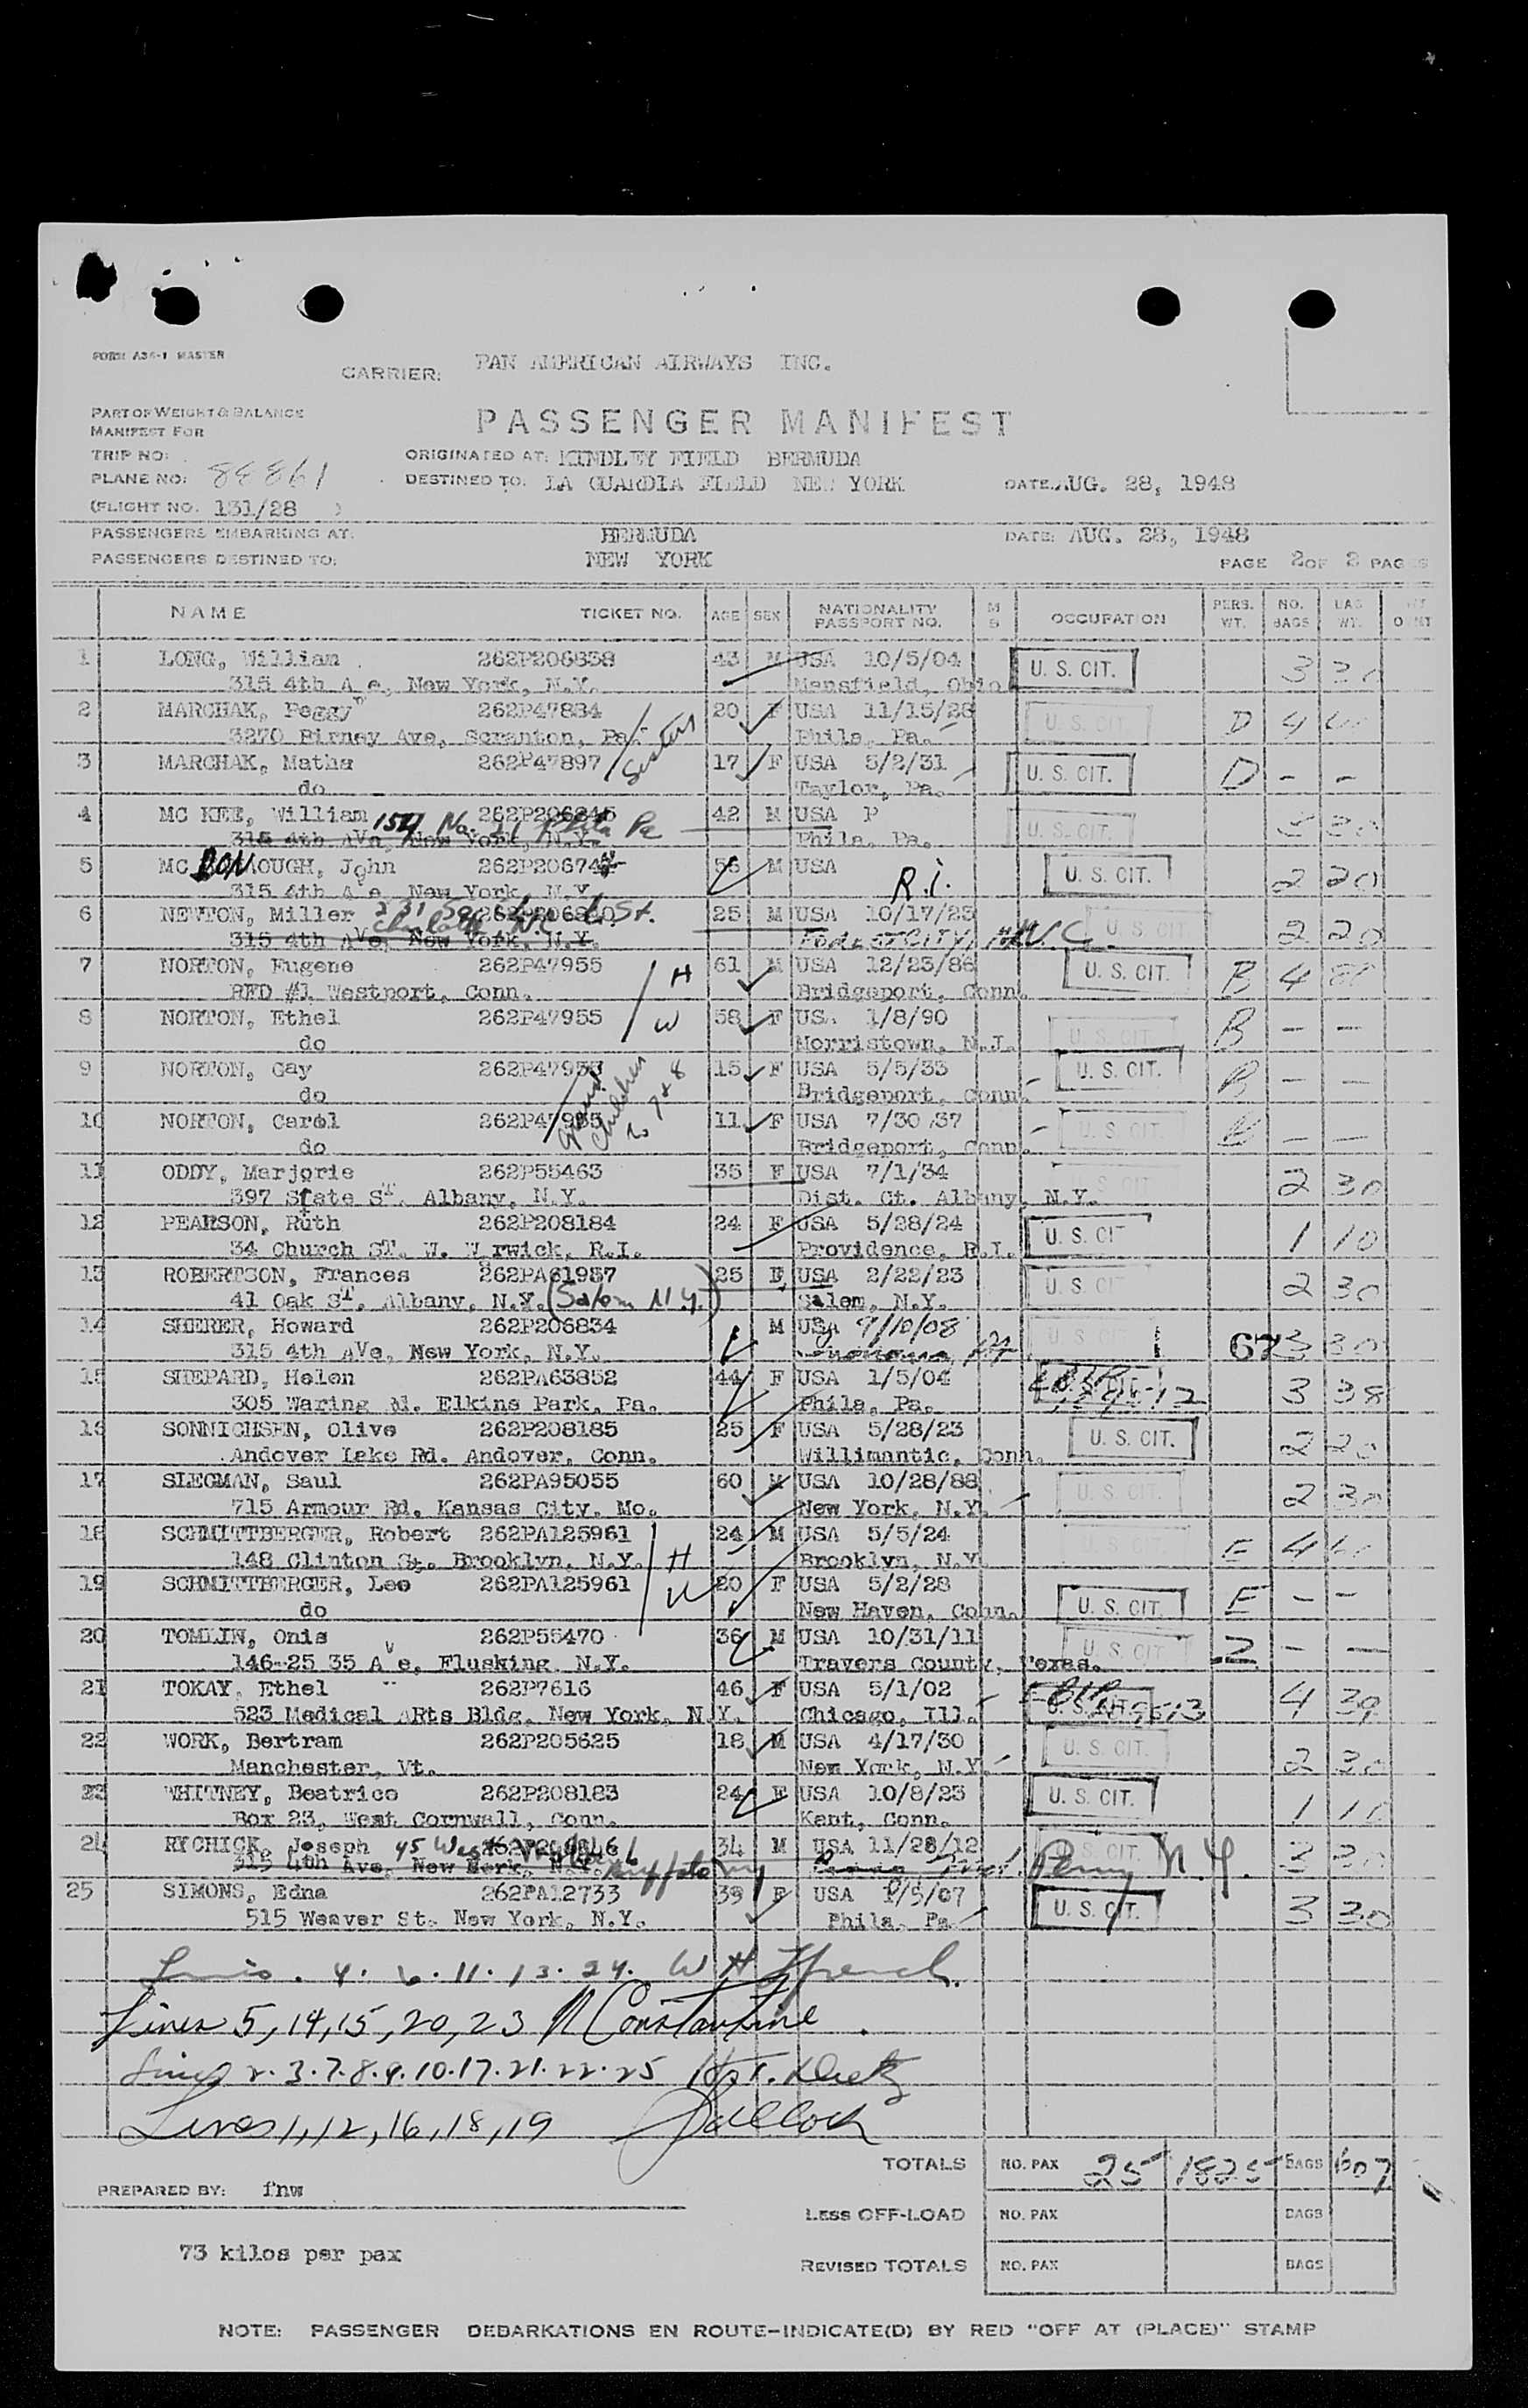 FORM A36-1 MASTER
CARRIER: PAN AMERICAN AIRWAYS INC.
PART OF WEIGHT & BALANCE
MANIFEST FOR
PASSENGER MANIFEST
TRIP NO:
ORIGINATED AT: KINDLEY FIELD BERMUDA
PLANE NO: 88861
DESTINED TO: LA GUARDIA FIELD NEW YORK DATE: AUG. 28, 1948
(FLIGHT NO. 131/28 )
PASSENGERS EMBARKING AT: BERMUDA DATE: AUG. 28, 1948
PASSENGERS DESTINED TO: NEW YORK PAGE 2 OF 2 PAGES
NAME TICKET NO. AGE SEX NATIONALITY PASSPORT NO. M S OCCUPATION PERS. WT. NO. BAGS BAG WT.
1 LONG, William 262P206838 43 M USA 10/5/04 U. S. CIT. 3 30
315 4th A e, New York, N.Y. Mansfield, Ohio
2 MARCHAK, Peggy 262P47834 20 F USA 11/15/28 U. S. CIT D 4
3270 Birney Ave, Scranton, Pa. Sisters Phila, Pa.
3 MARCHAK, Matha 262P47897 17 F USA 5/2/31 U. S. CIT. D - -
do Taylor, Pa.
4 MC KEE, William 262P206845 42 M USA P U. S. CIT.
315 4th AVe, New York, N.Y. Phila Pa Phila. Pa.
5 MC DONAOUGH, John 262P20674 56 M USA R.I. U. S. CIT. 2 20
315 4th A e, New York, N.Y.
6 NEWTON, Miller 262P206840 St. 25 M USA 10/17/23 U. S. CIT 2 20
315 4th AVe, New York, N.Y. Charlotte N.C. Forest CITY, N.C.
7 NORTON, Eugene 262P47955 H 61 M USA 12/23/86 U. S. CIT. B 4
RFD #1 Westport, Conn. Bridgeport, Conn.
8 NORTON, Ethel 262P47955 W 58 F USA 1/8/90 U. S. CIT. B - -
do Morristown, N.J.
9 NORTON, Gay 262P47953 15 F USA 5/5/33 U. S. CIT. B - -
do Grand Children to 7+8 Bridgeport, Conn.
10 NORTON, Carol 262P47985 11 F USA 7/30/37 U. S. CIT. B - -
do Bridgeport, Conn.
11 ODDY, Marjorie 262P55463 35 F USA 7/1/34 U. S. CIT 2 30
397 State ST. Albany, N.Y. Dist. Ct. Albany, N.Y.
12 PEARSON, Ruth 262P208184 24 F USA 5/28/24 U. S. CIT 1 10
34 Church ST. W. W rwick, R.I. Providence, R.I.
13 ROBERTSON, Frances 262PA61957 25 F USA 2/22/23 U. S. CIT 2 30
41 Oak ST. Albany, N.Y. (Salem N.Y.) Salem, N.Y.
14 SHERER, Howard 262P206834 M USA 9/10/08 U. S. CIT 67 3 30
315 4th AVe, New York, N.Y.
15 SHEPARD, Helen 262PA63852 44 F USA 1/5/04 3 38
305 Waring Rd. Elkins Park, Pa. Phila, Pa.
16 SONNICHSEN, Olive 262P208185 25 F USA 5/28/23 U. S. CIT. 2 20
Andover Lake Rd. Andover, Conn. Willimantic, Conn.
17 SIEGMAN, Saul 262PA95055 60 M USA 10/28/88 U. S. CIT. 2 30
715 Armour Rd. Kansas City, Mo. New York, N.Y.
18 SCHMITTBERGER, Robert 262PA125961 H 24 M USA 5/5/24 U. S. CIT. E 4
148 Clinton St. Brooklyn, N.Y. Brooklyn, N.Y
19 SCHMITTBERGER, Lee 262PA125961 W 20 F USA 5/2/28 U. S. CIT. E - -
do New Haven, Conn.
20 TOMLIN, Onis 262P55470 36 M USA 10/31/11 U. S. CIT. - -
146-25 35 Ave, Flusking, N.Y. Travers County, Texas.
21 TOKAY, Ethel 262P7616 46 F USA 5/1/02 U. S. CIT. 4 39
523 Medical ARts Bldg, New York, N.Y. Chicago, Ill.
22 WORK, Bertram 262P205625 18 M USA 4/17/30 U. S. CIT. 2 30
Manchester, Vt. New York, N.Y.
23 WHITNEY, Beatrice 262P208183 24 F USA 10/8/23 U. S. CIT. 1 10
Box 23, West Cornwall, Conn. Kent, Conn.
24 RYCHICK, Joseph 45 West 34 M USA 11/28/12 U. S. CIT. 3 30
315 4th Ave. New York, N.Y. Buffalo NY Perry N.Y.
25 SIMONS, Edna 262PA12733 39 F USA 1/5/07 U. S. CIT. 3 30
515 Weaver St. New York, N.Y. Phila. Pa
Lines. 4. 6. 11. 13. 24. W H French.
Lines 5, 14, 15, 20, 23 N Constantine
Lines 2. 3. 7. 8. 9. 10. 17. 21. 22. 25
Lines 1, 12, 16, 18, 19
TOTALS NO. PAX 25 1825 BAGS 607
PREPARED BY: fnw
LESS OFF-LOAD NO. PAX BAGS
73 kilos per pax
REVISED TOTALS NO. PAX BAGS
NOTE: PASSENGER DEBARKATIONS EN ROUTE-INDICATE(D) BY RED "OFF AT (PLACE)" STAMP